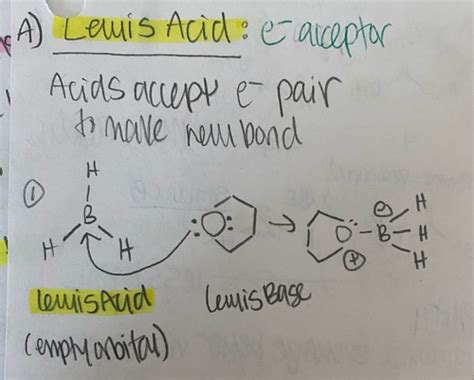 A) Lewis Acid: e- acceptor
Acids accept e- pair
to make new bond
①
H
B
H H
:O:
→
O - B - H
H
H
⊖
⊕
Lewis Acid
Lewis Base
(empty orbital)